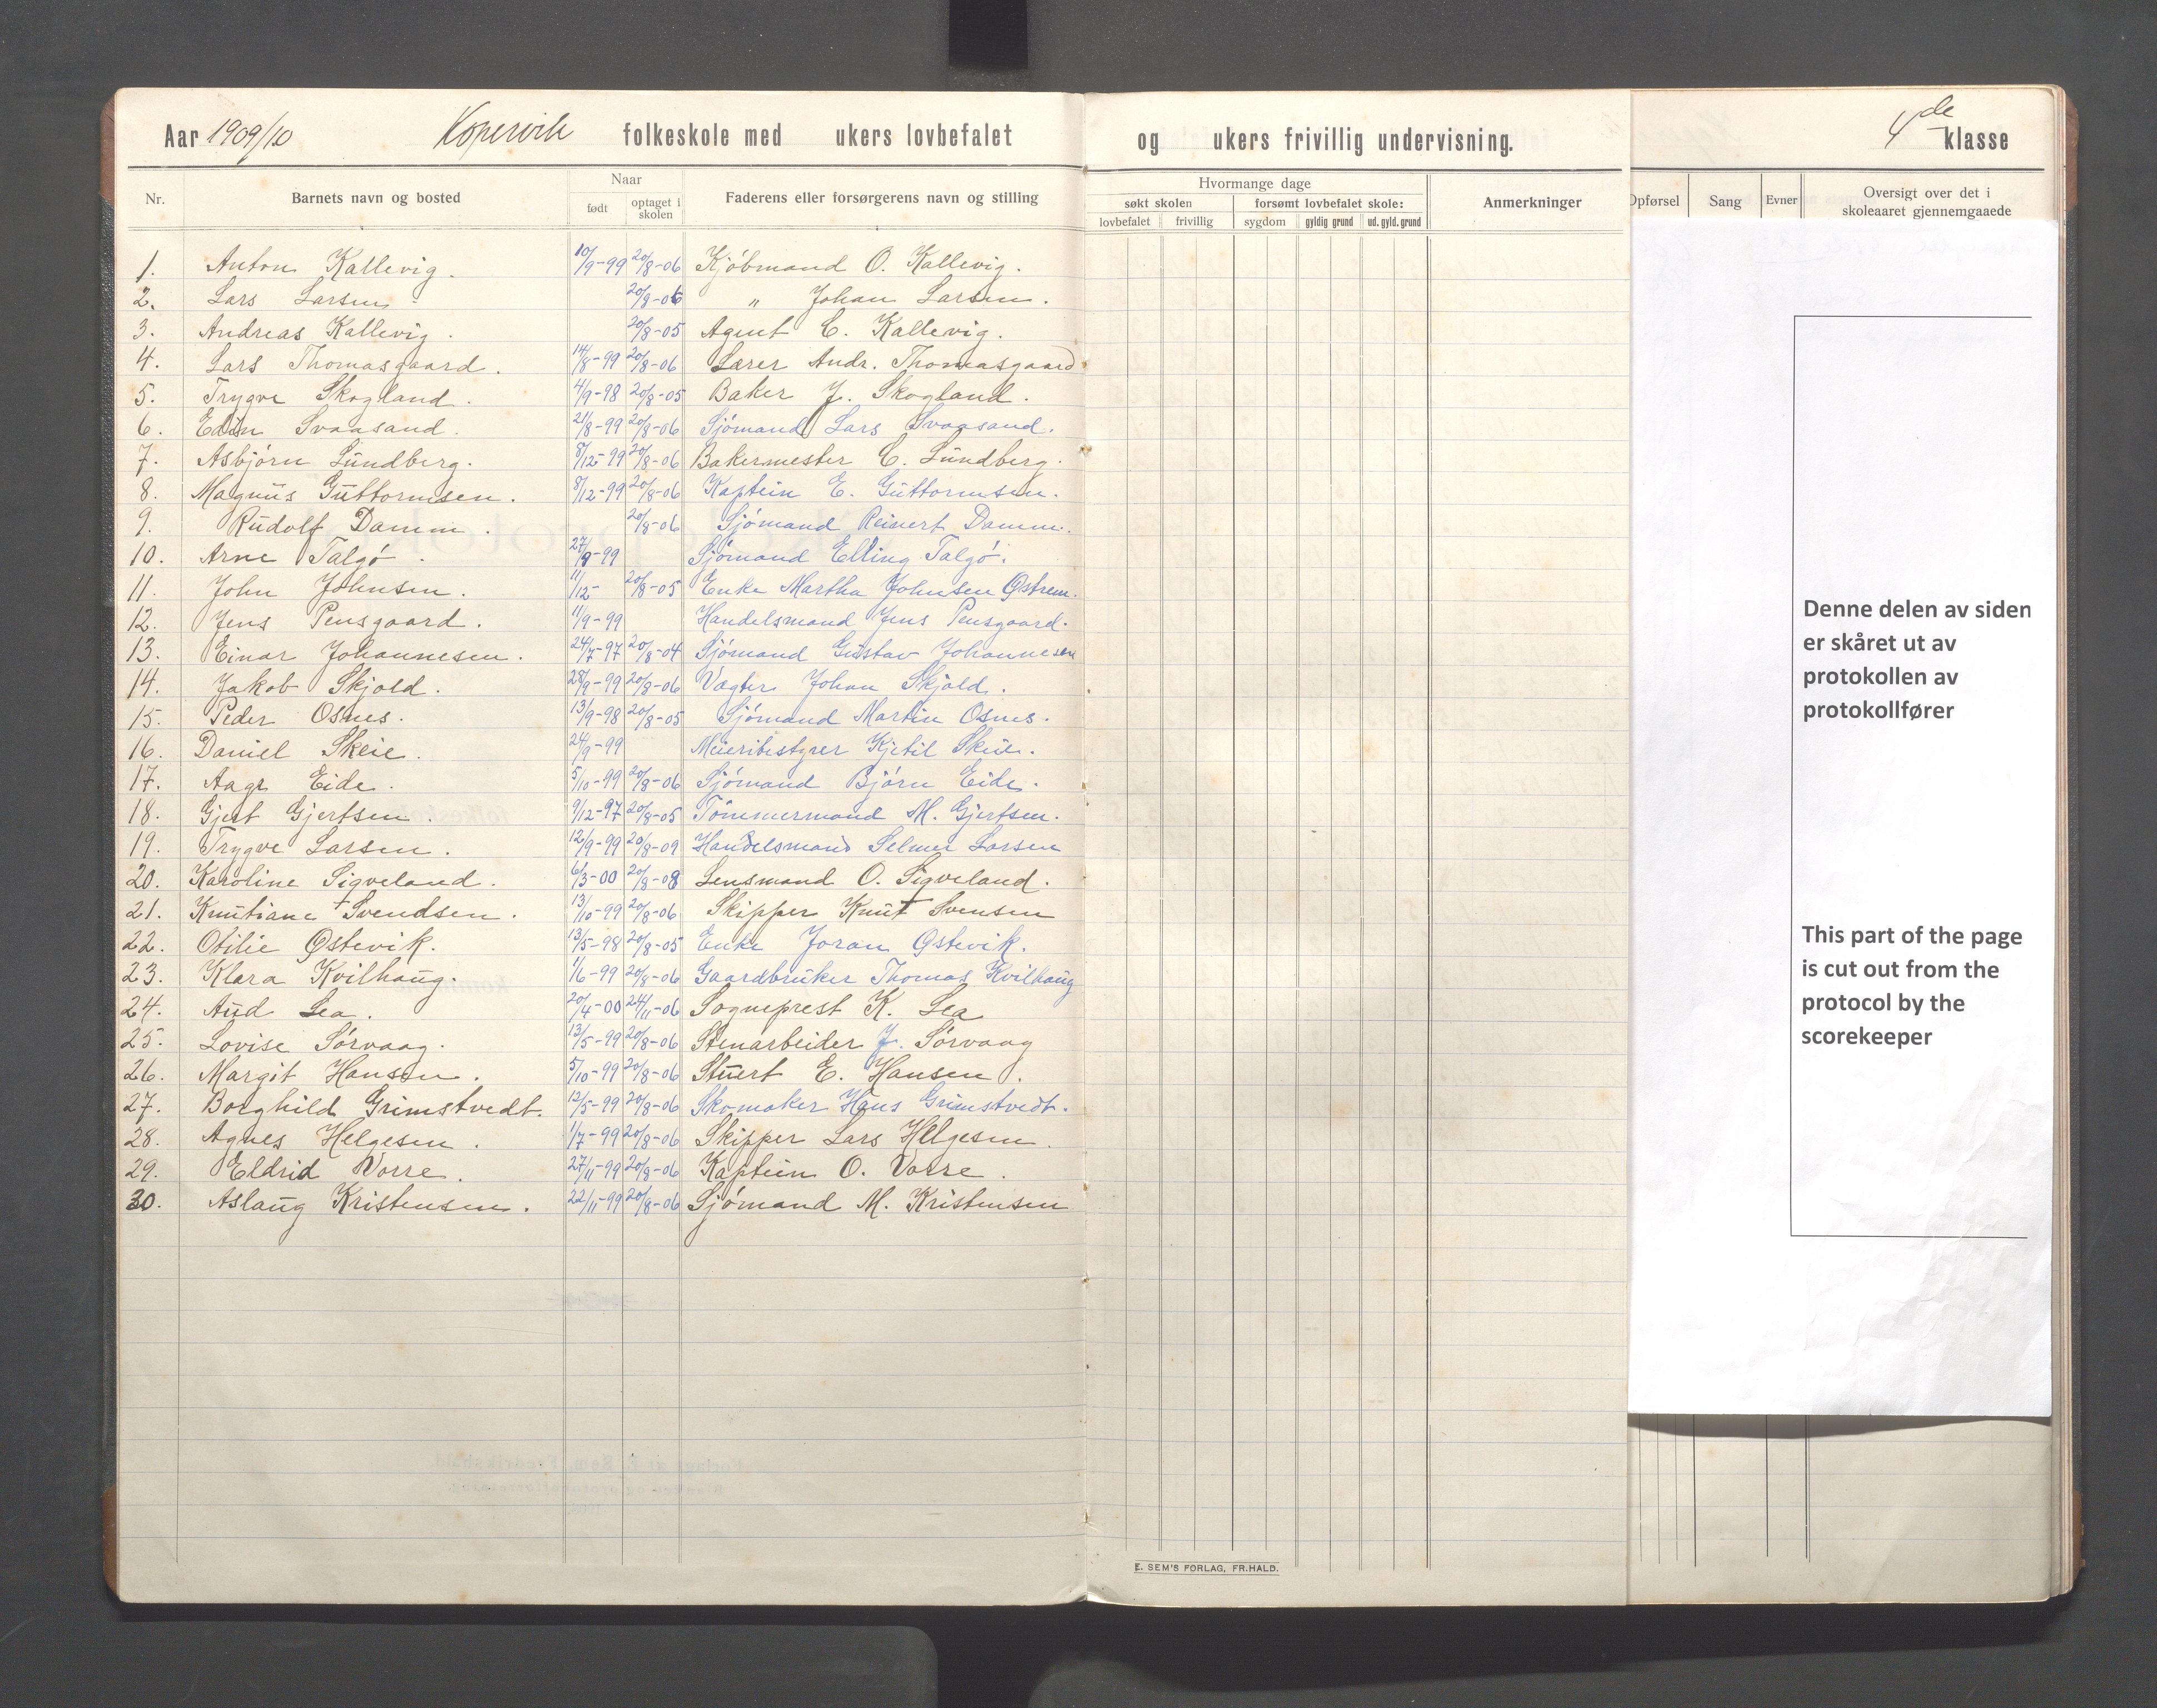 Aar 1909/10 Kopervik folkeskole med ukers lovbefalet og ukers frivillig undervisning. 4de klasse
Nr. Barnets navn og bosted Naar født optaget i skolen Faderens eller forsørgerens navn og stilling
Hvormange dage
søkt skolen forsømt lovbefalet skole:
lovbefalet frivillig sygdom gyldig grund ud. gyld. grund
Anmerkninger
Opførsel Sang Evner Oversigt over det i skoleaaret gjennemgaaede
1. Anton Kallevig. 10/9-99 20/8-06 Kjöbmand O. Kallevig.
2. Lars Larsen 20/8-06 " Johan Larsen.
3. Andreas Kallevig. 20/8-05 Agent C. Kallevig.
4. Lars Thomasgaard. 14/8-99 20/8-06 Lærer Andr. Thomasgaard
5. Trygve Skogland. 4/9-98 20/8-05 Baker J. Skogland.
6. Edin Svaasand. 21/8-99 20/8-06 Sjömand Lars Svaasand.
7. Asbjörn Lundberg. 8/12-99 20/8-06 Bakermester C. Lundberg.
8. Magnus Guttormsen. 8/12-99 20/8-06 Kaptein E. Guttormsen.
9. Rudolf Damm. 20/8-06 Sjömand Reinert Damm.
10. Arne Talgö. 27/9-99 Sjömand Elling Talgö.
11. John Johnsen. 11/12- 20/8-05 Enke Martha Johnsen Østrem.
12. Jens Pensgaard. 11/9-99 Handelsmand Jens Pensgaard.
13. Einar Johannesen. 24/7-97 20/8-04 Sjömand Gustav Johannesen
14. Jakob Skjold. 28/9-99 20/8-06 Vægter Johan Skjold.
15. Peder Osnes. 13/9-98 20/8-05 Sjömand Martin Osnes.
16. Daniel Skeie. 24/9-99 Meieribestyrer Kjetil Skeie.
17. Aage Eide. 5/10-99 20/8-06 Sjömand Björn Eide.
18. Gjert Gjertsen. 9/12-97 20/8-05 Tömmermand M. Gjertsen.
19. Trygve Larsen. 12/9-99 20/8-09 Handelsmand Selmer Larsen
20. Karoline Sigveland. 6/3-00 20/8-08 Lensmand O. Sigveland.
21. Knutiane Svendsen. 13/10-99 20/8-06 Skipper Knut Svensen
22. Otilie Østevik. 13/5-98 20/8-05 Enke Joran Østevik.
23. Klara Kvilhaug. 1/6-99 20/8-06 Gaardbruker Thomas Kvilhaug
24. Aud Lea. 20/4-00 24/11-06 Sogneprest K. Lea
25. Lovise Sörvaag. 13/5-99 20/8-06 Stenarbeider J. Sörvaag
26. Margit Hansen. 5/10-99 20/8-06 Stuert E. Hansen.
27. Borghild Grimstvedt. 12/5-99 20/8-06 Skomaker Hans Grimstvedt.
28. Agnes Helgesen. 1/7-99 20/8-06 Skipper Lars Helgesen.
29. Eldrid Vorre. 27/11-99 20/8-06 Kaptein O. Vorre.
30. Aslaug Kristensen. 22/11-99 20/8-06 Sjömand M. Kristensen
E. SEM'S FORLAG, FR.HALD.
Denne delen av siden
er skåret ut av
protokollen av
protokollfører
This part of the page
is cut out from the
protocol by the
scorekeeper